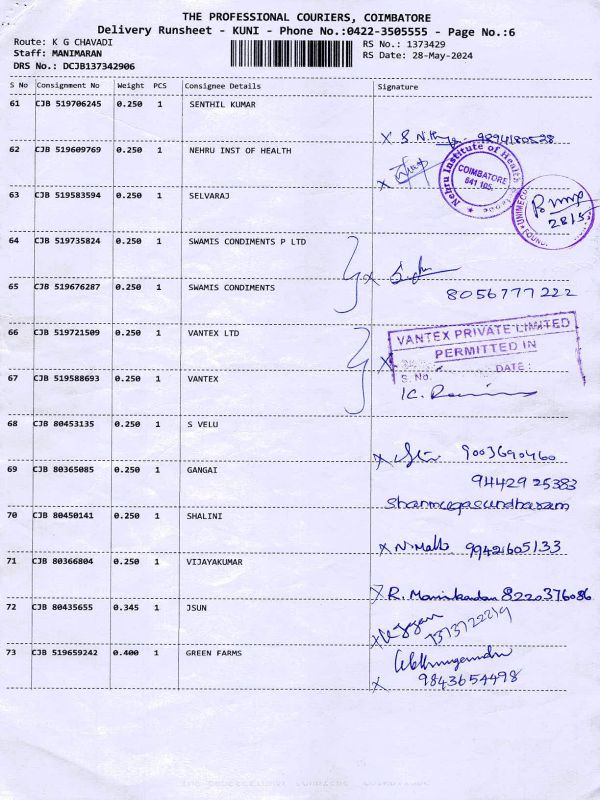 THE PROFESSIONAL COURIERS, COIMBATORE
Delivery Runsheet - KUNI - Phone No.:0422-3505555 - Page No.:6
Route: K G CHAVADI
RS No.: 1373429
Staff: MANIMARAN
RS Date: 28-May-2024
DRS No.: DCJB137342906
S No Consignment No Weight PCS Consignee Details Signature
61 CJB 519706245 0.250 1 SENTHIL KUMAR
X 9894180528
62 CJB 519609769 0.250 1 NEHRU INST OF HEALTH
X
Nehru Institute of Health
COIMBATORE
641 105.
63 CJB 519583594 0.250 1 SELVARAJ
28/5
64 CJB 519735824 0.250 1 SWAMIS CONDIMENTS P LTD
X
65 CJB 519676287 0.250 1 SWAMIS CONDIMENTS
8056777222
66 CJB 519721509 0.250 1 VANTEX LTD
VANTEX PRIVATE LIMITED
PERMITTED IN
X
S. No. DATE:
67 CJB 519588693 0.250 1 VANTEX
68 CJB 80453135 0.250 1 S VELU
X 9003690460
69 CJB 80365085 0.250 1 GANGAI
9442925383
Shanmugasundharam
70 CJB 80450141 0.250 1 SHALINI
X 9942605133
71 CJB 80366804 0.250 1 VIJAYAKUMAR
X R. Manikandan 8220376086
72 CJB 80435655 0.345 1 JSUN
X
73 CJB 519659242 0.400 1 GREEN FARMS
X 9843654498